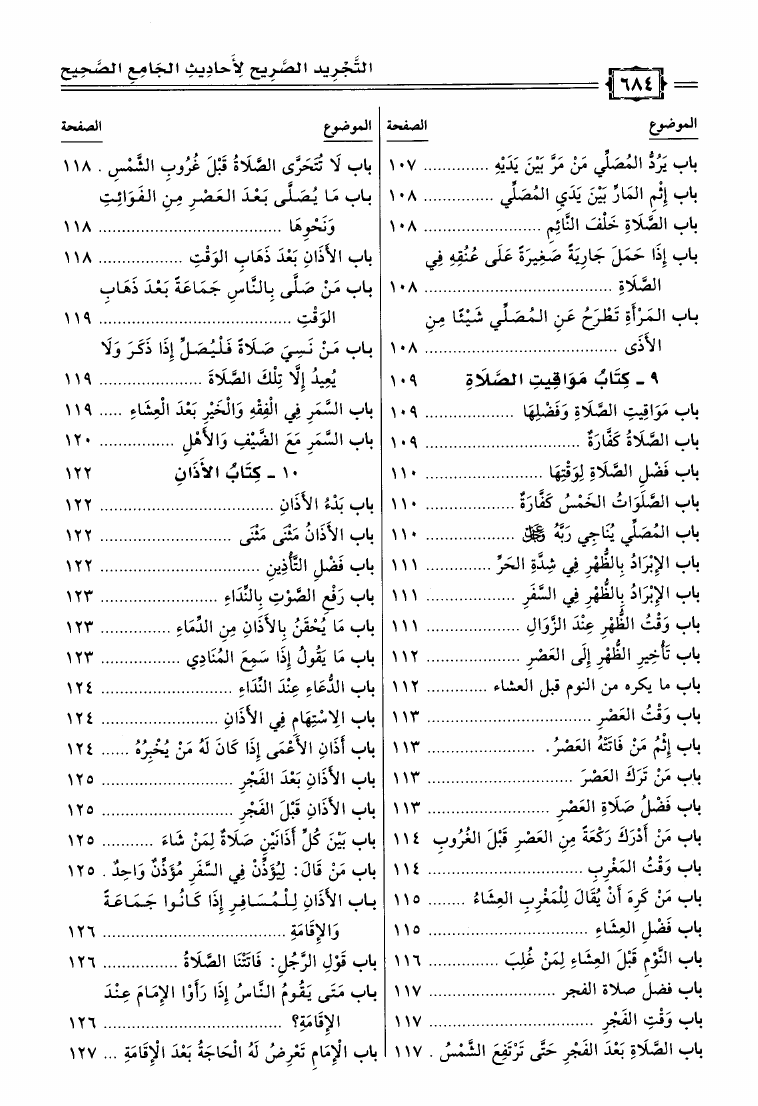 التَّجْرِيد الصَّرِيح لِأَحادِيثِ الجَامِعِ الصَّحِيح
٦٨٤
الموضوع الصفحة
باب يَرُدُّ المُصَلِّي مَنْ مَرَّ بَيْنَ يَدَيْهِ .............. ١٠٧
باب إِثْمِ المَارِّ بَيْنَ يَدَيِ المُصَلِّي ............... ١٠٨
باب الصَّلَاةِ خَلْفَ النَّائِمِ ......................... ١٠٨
باب إِذَا حَمَلَ جَارِيَةً صَغِيرَةً عَلَى عُنُقِهِ فِي
الصَّلَاةِ ....................................... ١٠٨
باب المَرْأَةِ تَطْرَحُ عَنِ المُصَلِّي شَيْئًا مِنِ
الأَذَى ........................................ ١٠٨
٩ ـ كِتَابُ مَوَاقِيتِ الصَّلَاةِ ١٠٩
باب مَوَاقِيتِ الصَّلَاةِ وَفَضْلِهَا ................... ١٠٩
باب الصَّلَاةُ كَفَّارَةٌ ................................ ١٠٩
باب فَضْلِ الصَّلَاةِ لِوَقْتِهَا ........................ ١١٠
باب الصَّلَوَاتُ الخَمْسُ كَفَّارَةٌ .................. ١١٠
باب المُصَلِّي يُنَاجِي رَبَّهُ ﷻ .................. ١١٠
باب الإِبْرَادُ بِالظُّهْرِ فِي شِدَّةِ الحَرِّ ............... ١١١
باب الإِبْرَادُ بِالظُّهْرِ فِي السَّفَرِ .................. ١١١
باب وَقْتُ الظُّهْرِ عِنْدَ الزَّوَالِ .................... ١١١
باب تَأْخِيرِ الظُّهْرِ إِلَى العَصْرِ .................... ١١٢
باب ما يكره من النوم قبل العشاء ............. ١١٢
باب وَقْتُ العَصْرِ ................................. ١١٣
باب إِثْمُ مَنْ فَاتَتْهُ العَصْرُ. ....................... ١١٣
باب مَنْ تَرَكَ العَصْرَ ............................. ١١٣
باب فَضْلُ صَلَاةِ العَصْرِ ......................... ١١٣
باب مَنْ أَدْرَكَ رَكْعَةً مِنِ العَصْرِ قَبْلَ الغُرُوبِ ١١٤
باب وَقْتُ المَغْرِبِ ................................ ١١٤
باب مَنْ كَرِهَ أَنْ يُقَالَ لِلْمَغْرِبِ العِشَاءُ ........ ١١٥
باب فَضْلِ العِشَاءِ ................................. ١١٥
باب النَّوْمِ قَبْلَ العِشَاءِ لِمَنْ غُلِبَ ............... ١١٦
باب فضل صلاة الفجر ......................... ١١٧
باب وَقْتِ الفَجْرِ .................................. ١١٧
باب الصَّلَاةِ بَعْدَ الفَجْرِ حَتَّى تَرْتَفِعَ الشَّمْسُ . ١١٧
الموضوع الصفحة
باب لَا تُتَحَرَّى الصَّلَاةُ قَبْلَ غُرُوبِ الشَّمْسِ . ١١٨
باب مَا يُصَلَّى بَعْدَ العَصْرِ مِنِ الفَوَائِتِ
وَنَحْوِهَا ..................................... ١١٨
باب الأَذَانِ بَعْدَ ذَهَابِ الوَقْتِ .................. ١١٨
باب مَنْ صَلَّى بِالنَّاسِ جَمَاعَةً بَعْدَ ذَهَابِ
الوَقْتِ ....................................... ١١٩
باب مَنْ نَسِيَ صَلَاةً فَلْيُصَلِّ إِذَا ذَكَرَ وَلَا
يُعِيدُ إِلَّا تِلْكَ الصَّلَاةَ ..................... ١١٩
باب السَّمَرِ فِي الْفِقْهِ وَالْخَيْرِ بَعْدَ العِشَاءِ ..... ١١٩
باب السَّمَرِ مَعَ الضَّيْفِ وَالأَهْلِ ................ ١٢٠
١٠ ـ كِتَابُ الأَذَانِ ١٢٢
باب بَدْءُ الأَذَانِ .................................... ١٢٢
باب الأَذَانُ مَثْنَى مَثْنَى ............................ ١٢٢
باب فَضْلِ التَّأْذِينِ ................................. ١٢٢
باب رَفْعِ الصَّوْتِ بِالنِّدَاءِ ......................... ١٢٣
باب مَا يُحْقَنُ بِالأَذَانِ مِنِ الدِّمَاءِ ............... ١٢٣
باب مَا يَقُولُ إِذَا سَمِعَ المُنَادِي ................. ١٢٣
باب الدُّعَاءِ عِنْدَ النِّدَاءِ ............................ ١٢٤
باب الِاسْتِهَامِ فِي الأَذَانِ ......................... ١٢٤
باب أَذَانِ الأَعْمَى إِذَا كَانَ لَهُ مَنْ يُخْبِرُهُ ...... ١٢٤
باب الأَذَانِ بَعْدَ الفَجْرِ ............................ ١٢٥
باب الأَذَانِ قَبْلَ الفَجْرِ ............................ ١٢٥
باب بَيْنَ كُلِّ أَذَانَيْنِ صَلَاةٌ لِمَنْ شَاءَ ........... ١٢٥
باب مَنْ قَالَ: لِيُؤَذِّنْ فِي السَّفَرِ مُؤَذِّنٌ وَاحِدٌ . ١٢٥
باب الأَذَانِ لِلْمُسَافِرِ إِذَا كَانُوا جَمَاعَةً
وَالإِقَامَةِ ..................................... ١٢٦
باب قَوْلِ الرَّجُلِ: فَاتَتْنَا الصَّلَاةُ ................ ١٢٦
باب مَتَى يَقُومُ النَّاسُ إِذَا رَأَوْا الإِمَامَ عِنْدَ
الإِقَامَةِ؟ ..................................... ١٢٦
باب الْإِمَامِ تَعْرِضُ لَهُ الْحَاجَةُ بَعْدَ الْإِقَامَةِ ... ١٢٧